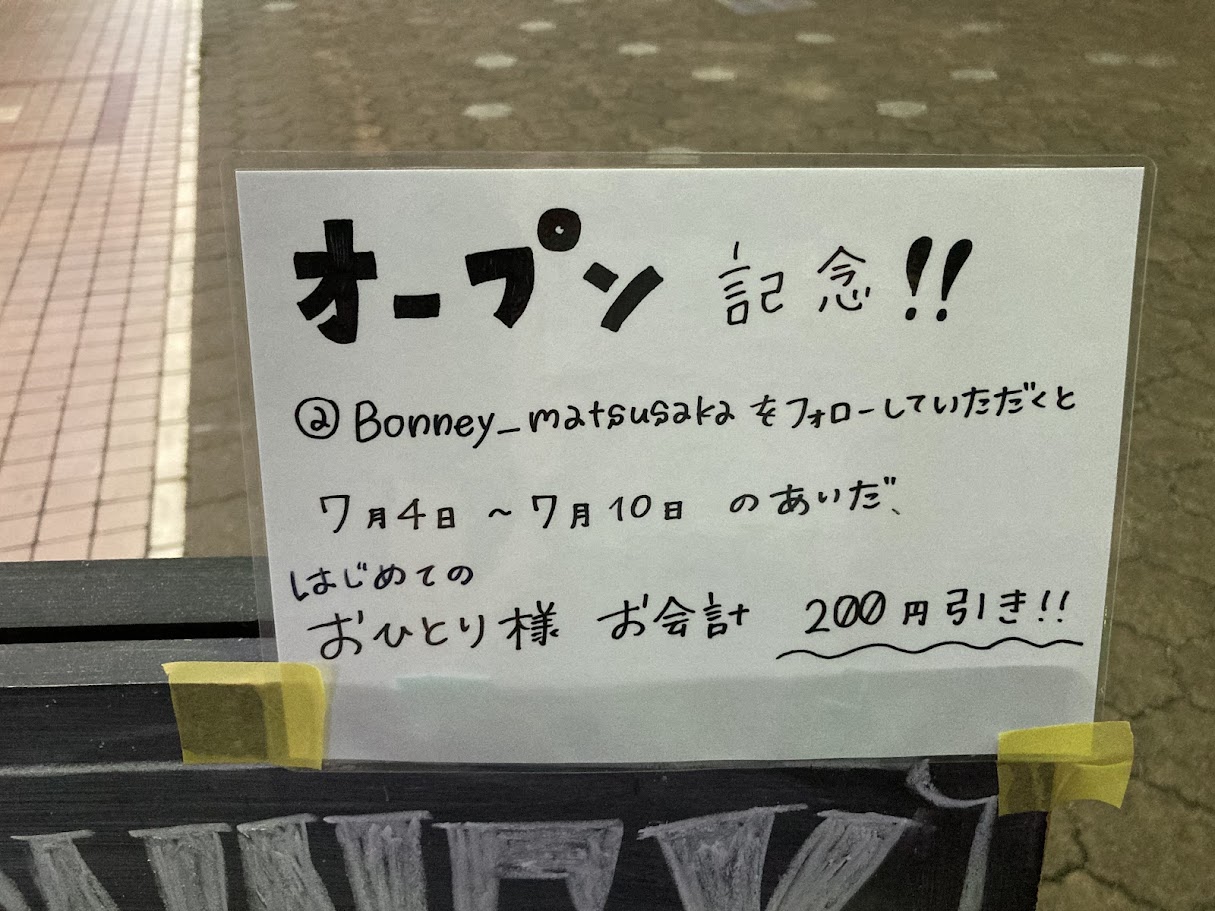 オープン 記念!!
@Bonney_matsusaka をフォローしていただくと
7月4日 ~ 7月10日 のあいだ、
はじめての
おひとり様 お会計 200円引き!!